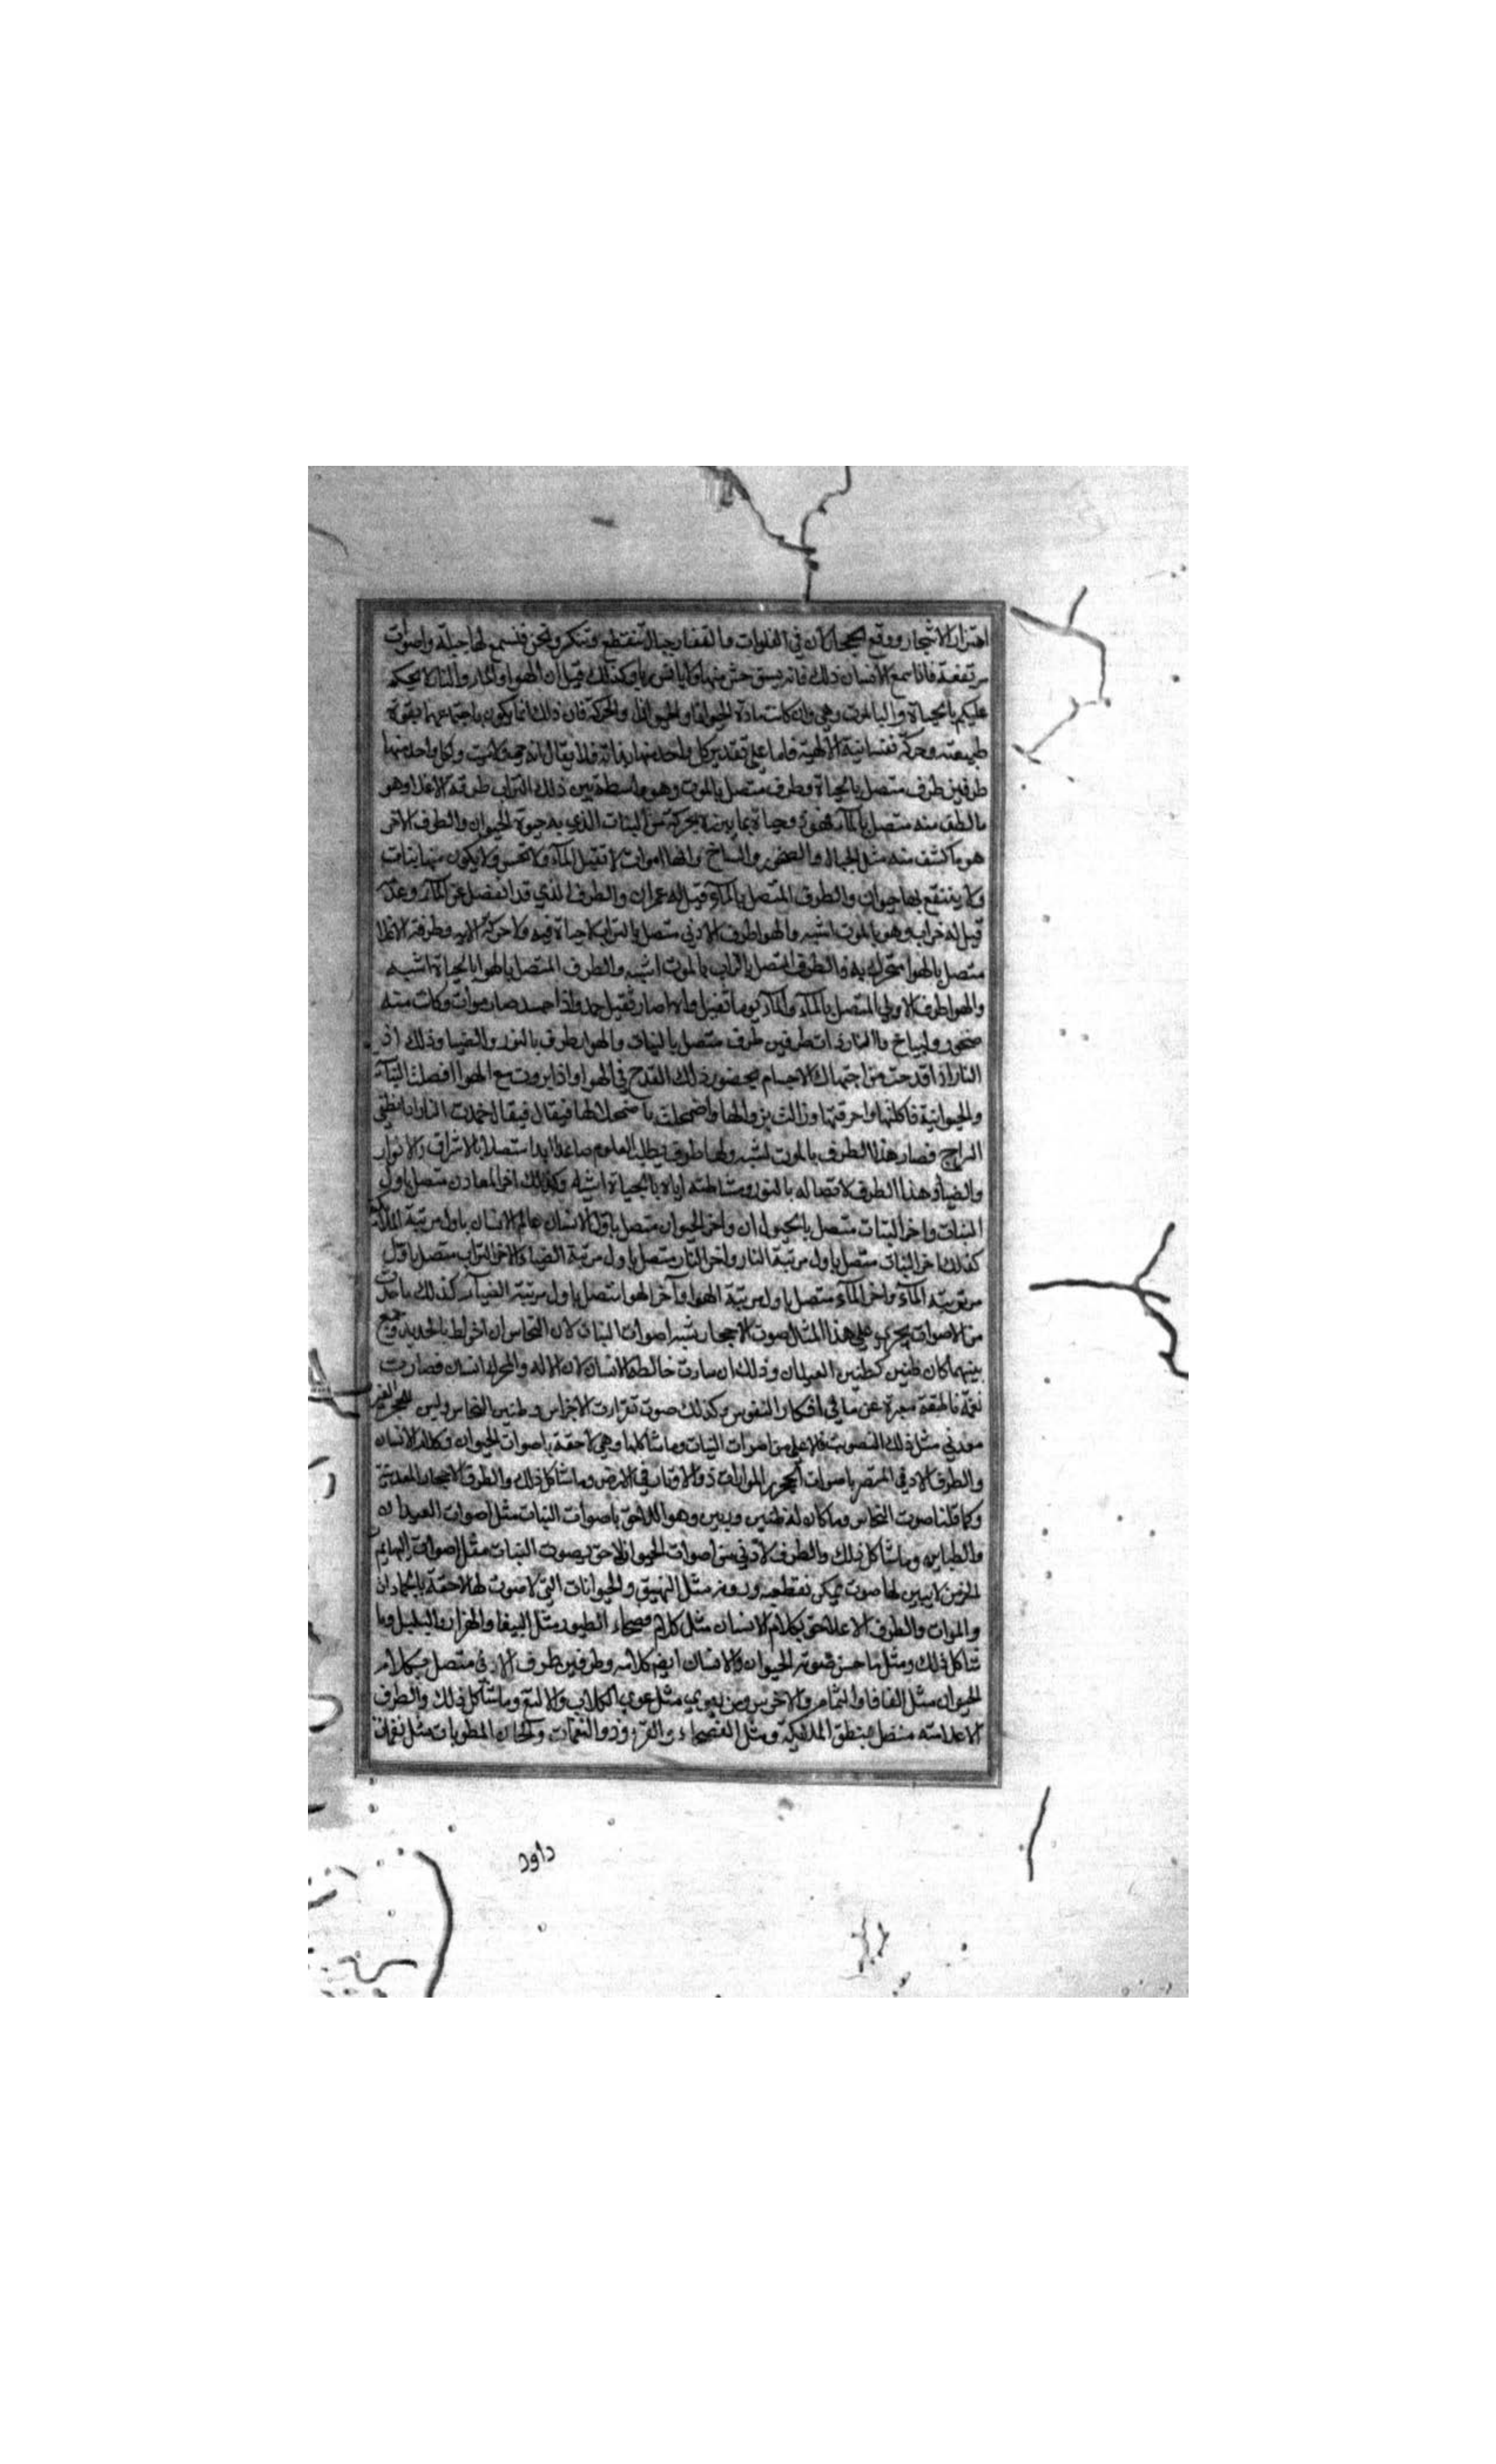 اهتزاز الاشجار ووقع الاحجار لان في الفلوات والقفار جبال تنقطع وتنكر ونحن فنسمع لها جبلة واصوات
مرتفعة فاذا سمع الانسان ذلك فانه وكذلك قيل ان الهوا والمآء والنار لا يحكم
عليكم بالحياة ولا بالموت وهي وان كانت مادة الحيوان والحركة فان ذلك انما يكون باجتماعها بقوة
طبيعته وحركة نفسانية الالهية فاما على تقدير كل واحد منها بذاته فلا يقال انه حي ولا ميت ولكل واحد منها
طرفين طرف متصل بالحياة وطرف متصل بالموت وهو واسطة بين ذلك التراب طرفه الاعلا وهو
مالطف منه متصل بالمآء فهو وحياة بما من النبات الذي به حيوة الحيوان والطرف الاخر
هو ما كشف منه مثل الجبال والصخور والسباخ وانها اموات لا تقبل المآء ولا تحس ولا يكون منها نبات
ولا ينتفع بها حيوان والطرف المتصل بالمآء قيل له عمران والطرف الذي قد انفصل عن المآء وعد
قيل له خراب وهو بالموت اشبه والهوا طرف الادني متصل بالتراب لا حياة فيه ولا حركة الابه وطرفه الاعلا
متصل بالهوا متحرك به والطرف المتصل بالتراب بالموت اشبه والطرف المتصل بالهوا بالحياة اشبه
والهوا طرف الاولي المتصل بالمآء والمآء ثقيل جمد واذا جمد صار موات وكانت منه
صخور وسباخ والنار ذات طرفين طرف متصل بالنبات والهوا وطرف بالنور والضيا وذلك ان
النار اذا قدحت من الاجسام بحضور ذلك القدح في الهوا واذا برزت مع الهوا النباتـ
والحيوانية فاكلتها واحرقتها وزالت بزوالها واضمحلت باضمحلالها فيقال فيقال خمدت النار
السراج فصار هذا الطرف بالموت اشبه ولها طرف يطلب العلوم صاعدا ابدا متصلا بالاشراق والانوار
والضياء وهذا الطرف لاتصاله بالنور اياه بالحياة اشبه وكذلك اخر المعادن متصل باول
النبات واخر النبات متصل بالحيوان واخر الحيوان متصل باول الانسان عالم الانسان باول مرتبة الملائكة
كذلك اخر النبات متصل باول مرتبة النار واخر النار متصل باول مرتبة الضياء لاخر التراب متصل باول
مرتبة المآء واخر المآء متصل باول مرتبة الهوا وآخر الهوا متصل باول مرتبة الضيآء كذلك
من الاصوات يجري علي هذا المثال صوت الاحجار تشبه اصوات النبات لان النحاس ان اخلط بالحديد وجمع
بينهما كان طنين كطنين العيدان وذلك ان خالطه الانسان لان الاله والمحرك انسان وصارت
نغمة ناطقة معبرة عن ما في افكار النفوس وكذلك صوت الاجراس وطنين النحاس وليس للحجر الغير
معدني مثل ذلك التصويت فلاعلي من اصوات النبات وما شاكلها وهي لاحقة باصوات الحيوان وكلام الانسان
والطرف الادني باصوات في الارض وما شاكل ذلك والطرف الاحجار المعدنية
وكما قلنا صوت النحاس وما كان له طنين ورنين وهو اللاحق باصوات النبات مثل اصوات العيدان
والطنابير وما شاكل ذلك والطرف الادني من اصوات الحيوان لاحق بصوت النبات مثل اصوات البهايم
لها صوت يمكن تقطيعه ووزنه مثل النهيق والحيوانات التي لا صوت لها لاحقة بالجمادات
والموات والطرف الاعلا لاحق بكلام الانسان مثل كلام فصحاء الطيور مثل الببغا والهزار والبلبل وما
شاكل ذلك ومثل ما حسن صوته الحيوان والانسان ايضا كلامه وطرفين طرف الادني متصل بكلام
الحيوان مثل الفافا والتمتام والاخرس ومن يعوي مثل عوي الكلاب والالثغ وما شاكل ذلك والطرف
الاعلا منه متصل بمنطق الملايكة ومثل الفصحاء والقرء وذو النغمات والحان المطربات مثل نغمات
داود